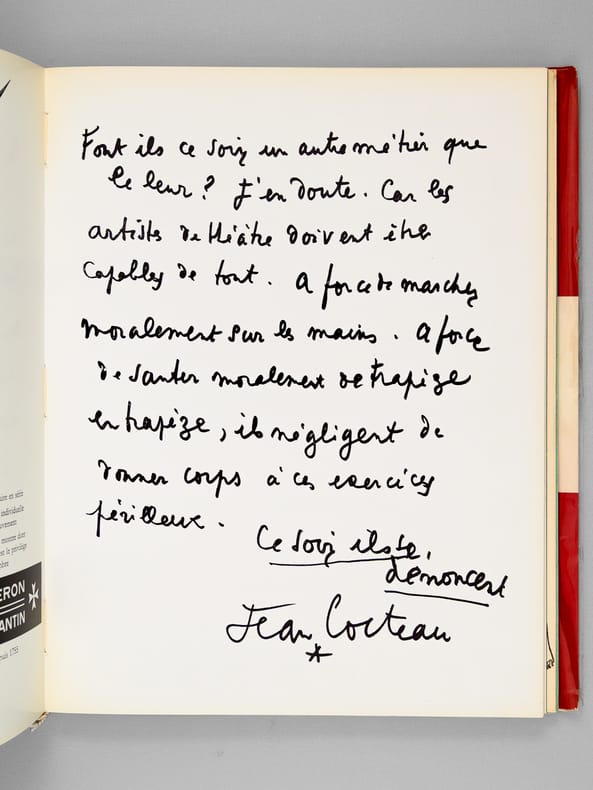 Font ils ce soir un autre métier que
le leur ? J'en doute. Car les
artistes de théâtre doivent être
capables de tout. A force de marcher
moralement sur les mains. A force
de sauter moralement de trapèze
en trapèze, ils négligent de
donner corps à ces exercices
périlleux.
Ce soir ils le
démontrent
Jean Cocteau
*
individuelle
uvement
montre dont
est le privilège
mbre
ERON
ANTIN
puis 1755